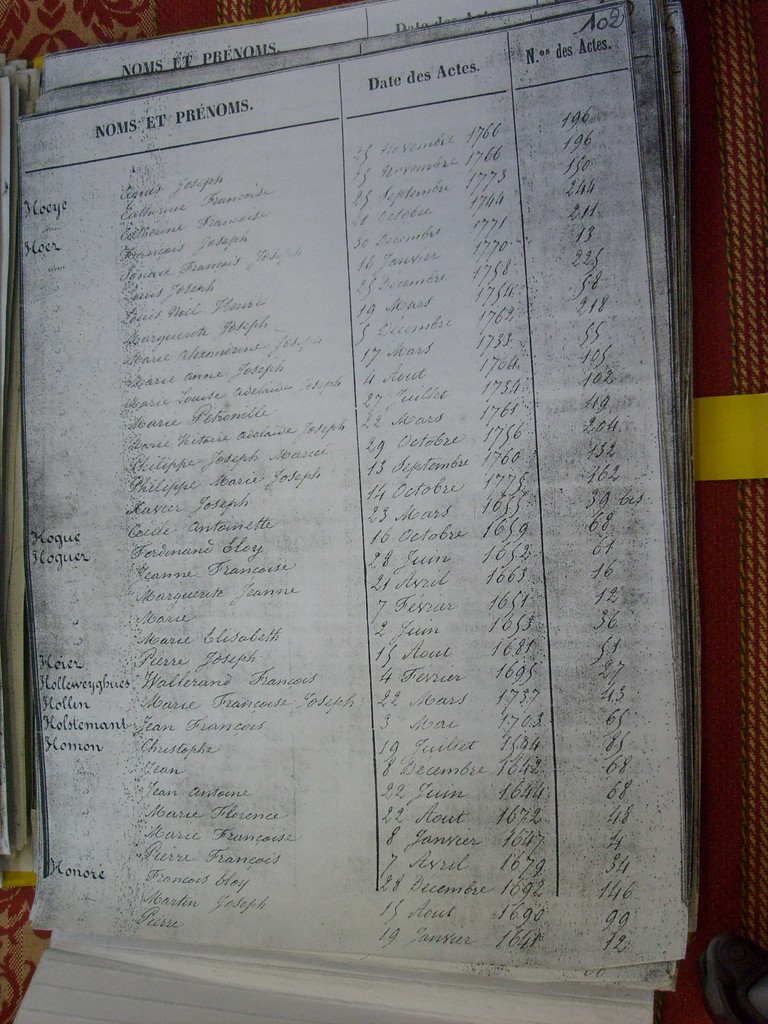 NOMS ET PRÉNOMS. Date des Actes
102
NOMS ET PRÉNOMS. Date des Actes. N.os des Actes.
Hoeye Agnès Joseph 25 Novembre 1766 196
Catherine Francoise 25 Novembre 1766 196
Hoez Catherine Francoise 25 Septembre 1773 150
François Joseph 21 Octobre 1744 244
Ignace Francois Joseph 30 Decembre 1771 211
Louis Joseph 16 Janvier 1770 13
Louis Noël Henri 25 Decembre 1758 225
Marguerite Joseph 19 Mars 1754 58
Marie Alexandrine Joseph 5 Decembre 1762 218
Marie Anne Joseph 17 Mars 1733 55
Marie Louise Adelaide Joseph 4 Aout 1764 105
Marie Petronille 27 Juillet 1734 102
Marie Victoire Adelaide Joseph 22 Mars 1761 49
Philippe Joseph Marie 29 Octobre 1756 204
Philippe Marie Joseph 13 Septembre 1760 132
Xavier Joseph 14 Octobre 1775 162
Hoque Cecile Antoinette 23 Mars 1655 39 bis
Hoquer Ferdinand Eloy 16 Octobre 1659 68
Jeanne Francoise 28 Juin 1652 61
Marguerite Jeanne 21 Avril 1663 16
Marie 7 Fevrier 1651 12
Marie Elisabeth 2 Juin 1653 36
Hoier Pierre Joseph 15 Aout 1681 51
Holleweyghues Walterand François 4 Fevrier 1695 27
Hollin Marie Francoise Joseph 22 Mars 1737 43
Holstemant Jean François 3 Mai 1703 65
Homon Christophe 19 Juillet 1644 85
Jean 8 Decembre 1642 68
Jean Antoine 22 Juin 1644 68
Marie Florence 22 Aout 1672 48
Marie Francoise 8 Janvier 1647 4
Pierre François 7 Avril 1679 34
Honoré François Eloy 28 Decembre 1692 146
Martin Joseph 15 Aout 1690 99
Pierre 19 Janvier 1641 12